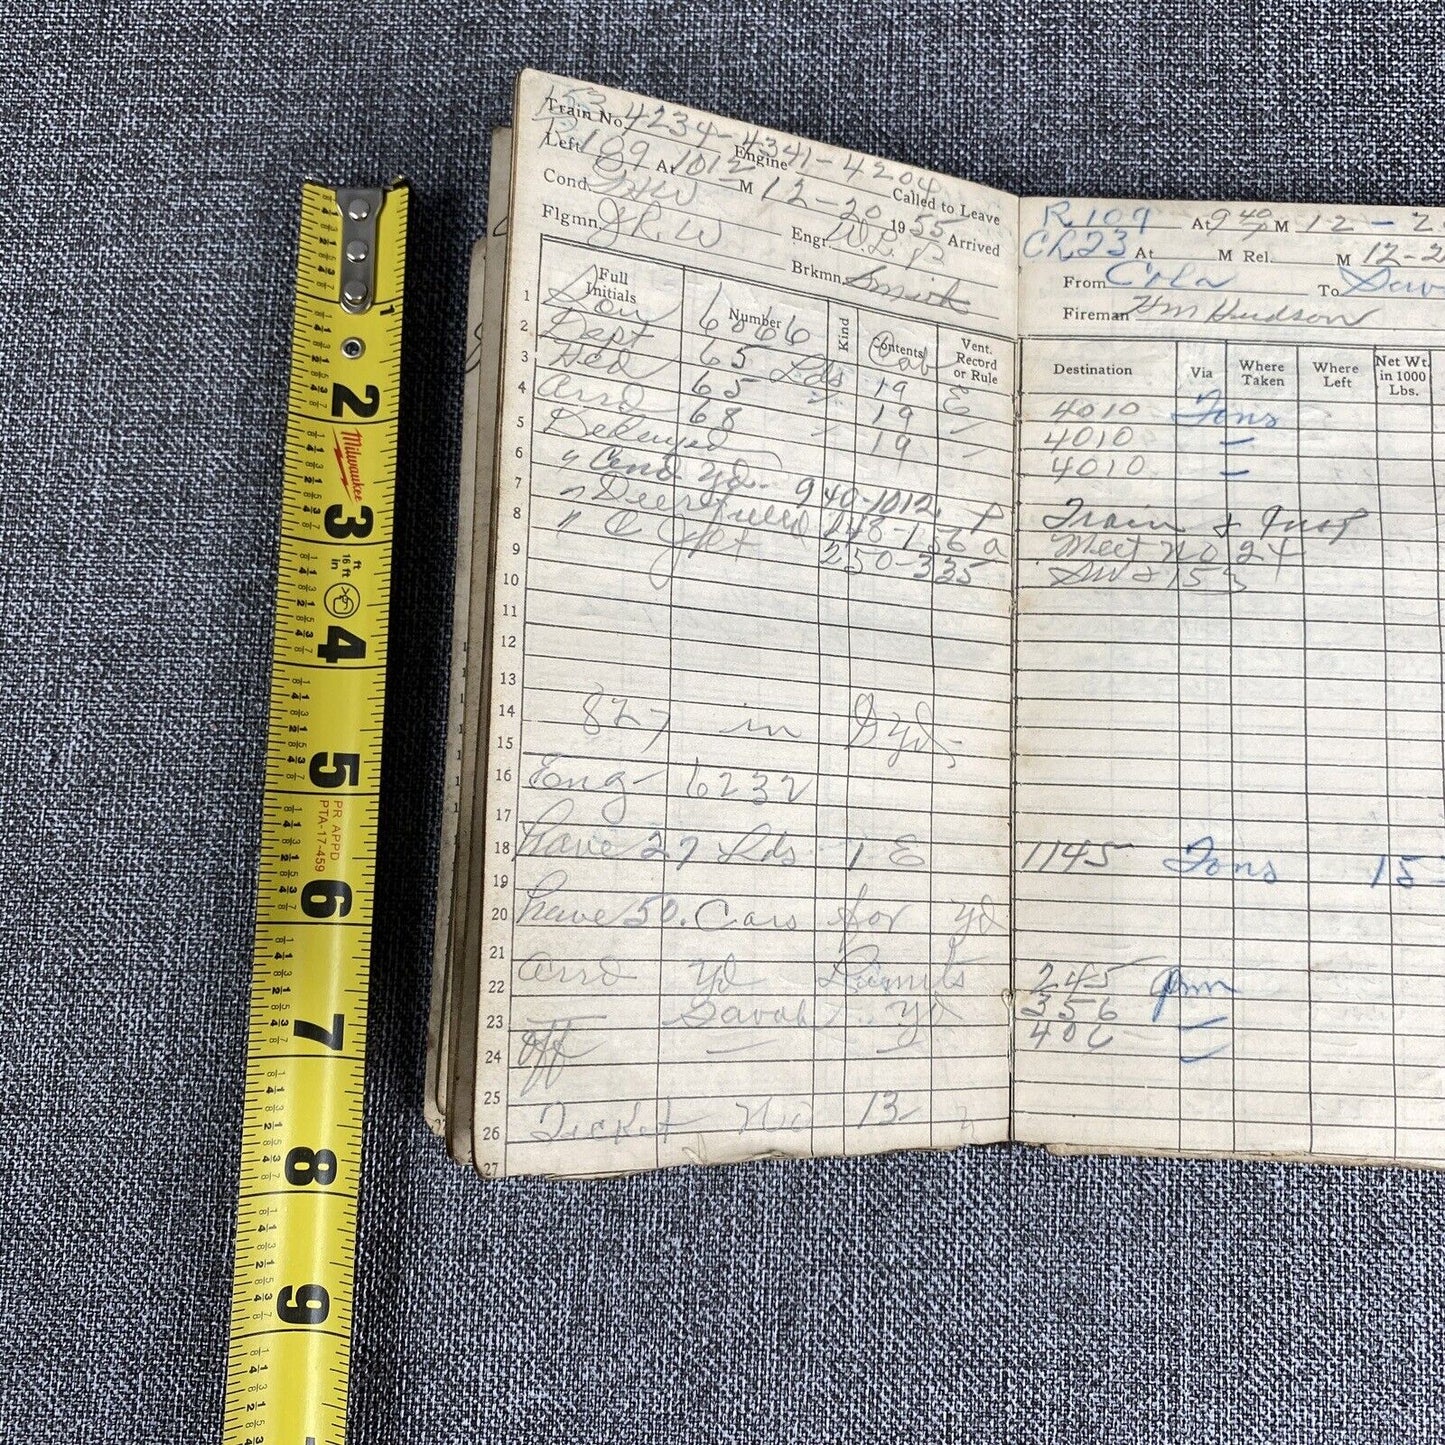 153 4234-4341-4204
Train No. Engine Called to Leave
109 1012 12-20 55
Left At M 19 Arrived
Cond. Engr.
Flgmn. J.R.W Brkmn. Smith
Full Initials Number Kind Contents Vent. Record or Rule
1 6666 Cab
2 Dept 65 Lds 19 E
3 65 " 19 "
4 Arrd 68 " 19 "
5 Delayed
6 " Cend Yd - 940-1012 P
7 " 148-156 a
8 " 250-335
9
10
11
12
13
14 827 in S Yd,
15
16 Eng - 6232
17
18 have 27 Lds 1 E
19
20 have 50. Cars for yd
21
22 Arrd yd Limits
23 Savah yd
24 off — —
25
26 Ticket No 13
27
R 109 At 940 M 12-2
CR 23 At M Rel. M 12-2
From Cola To Sav
Fireman HM Hudson
Destination Via Where Taken Where Left Net Wt. in 1000 Lbs.
4010 Tons
4010 –
4010 –
Train & Insp
Meet No 24
153
1145 Tons 15
245 pm
356
406
1
2
Milwaukee
3
ft
16 ft
in
4
5
PR APPD
PTA-17-459
6
7
8
9